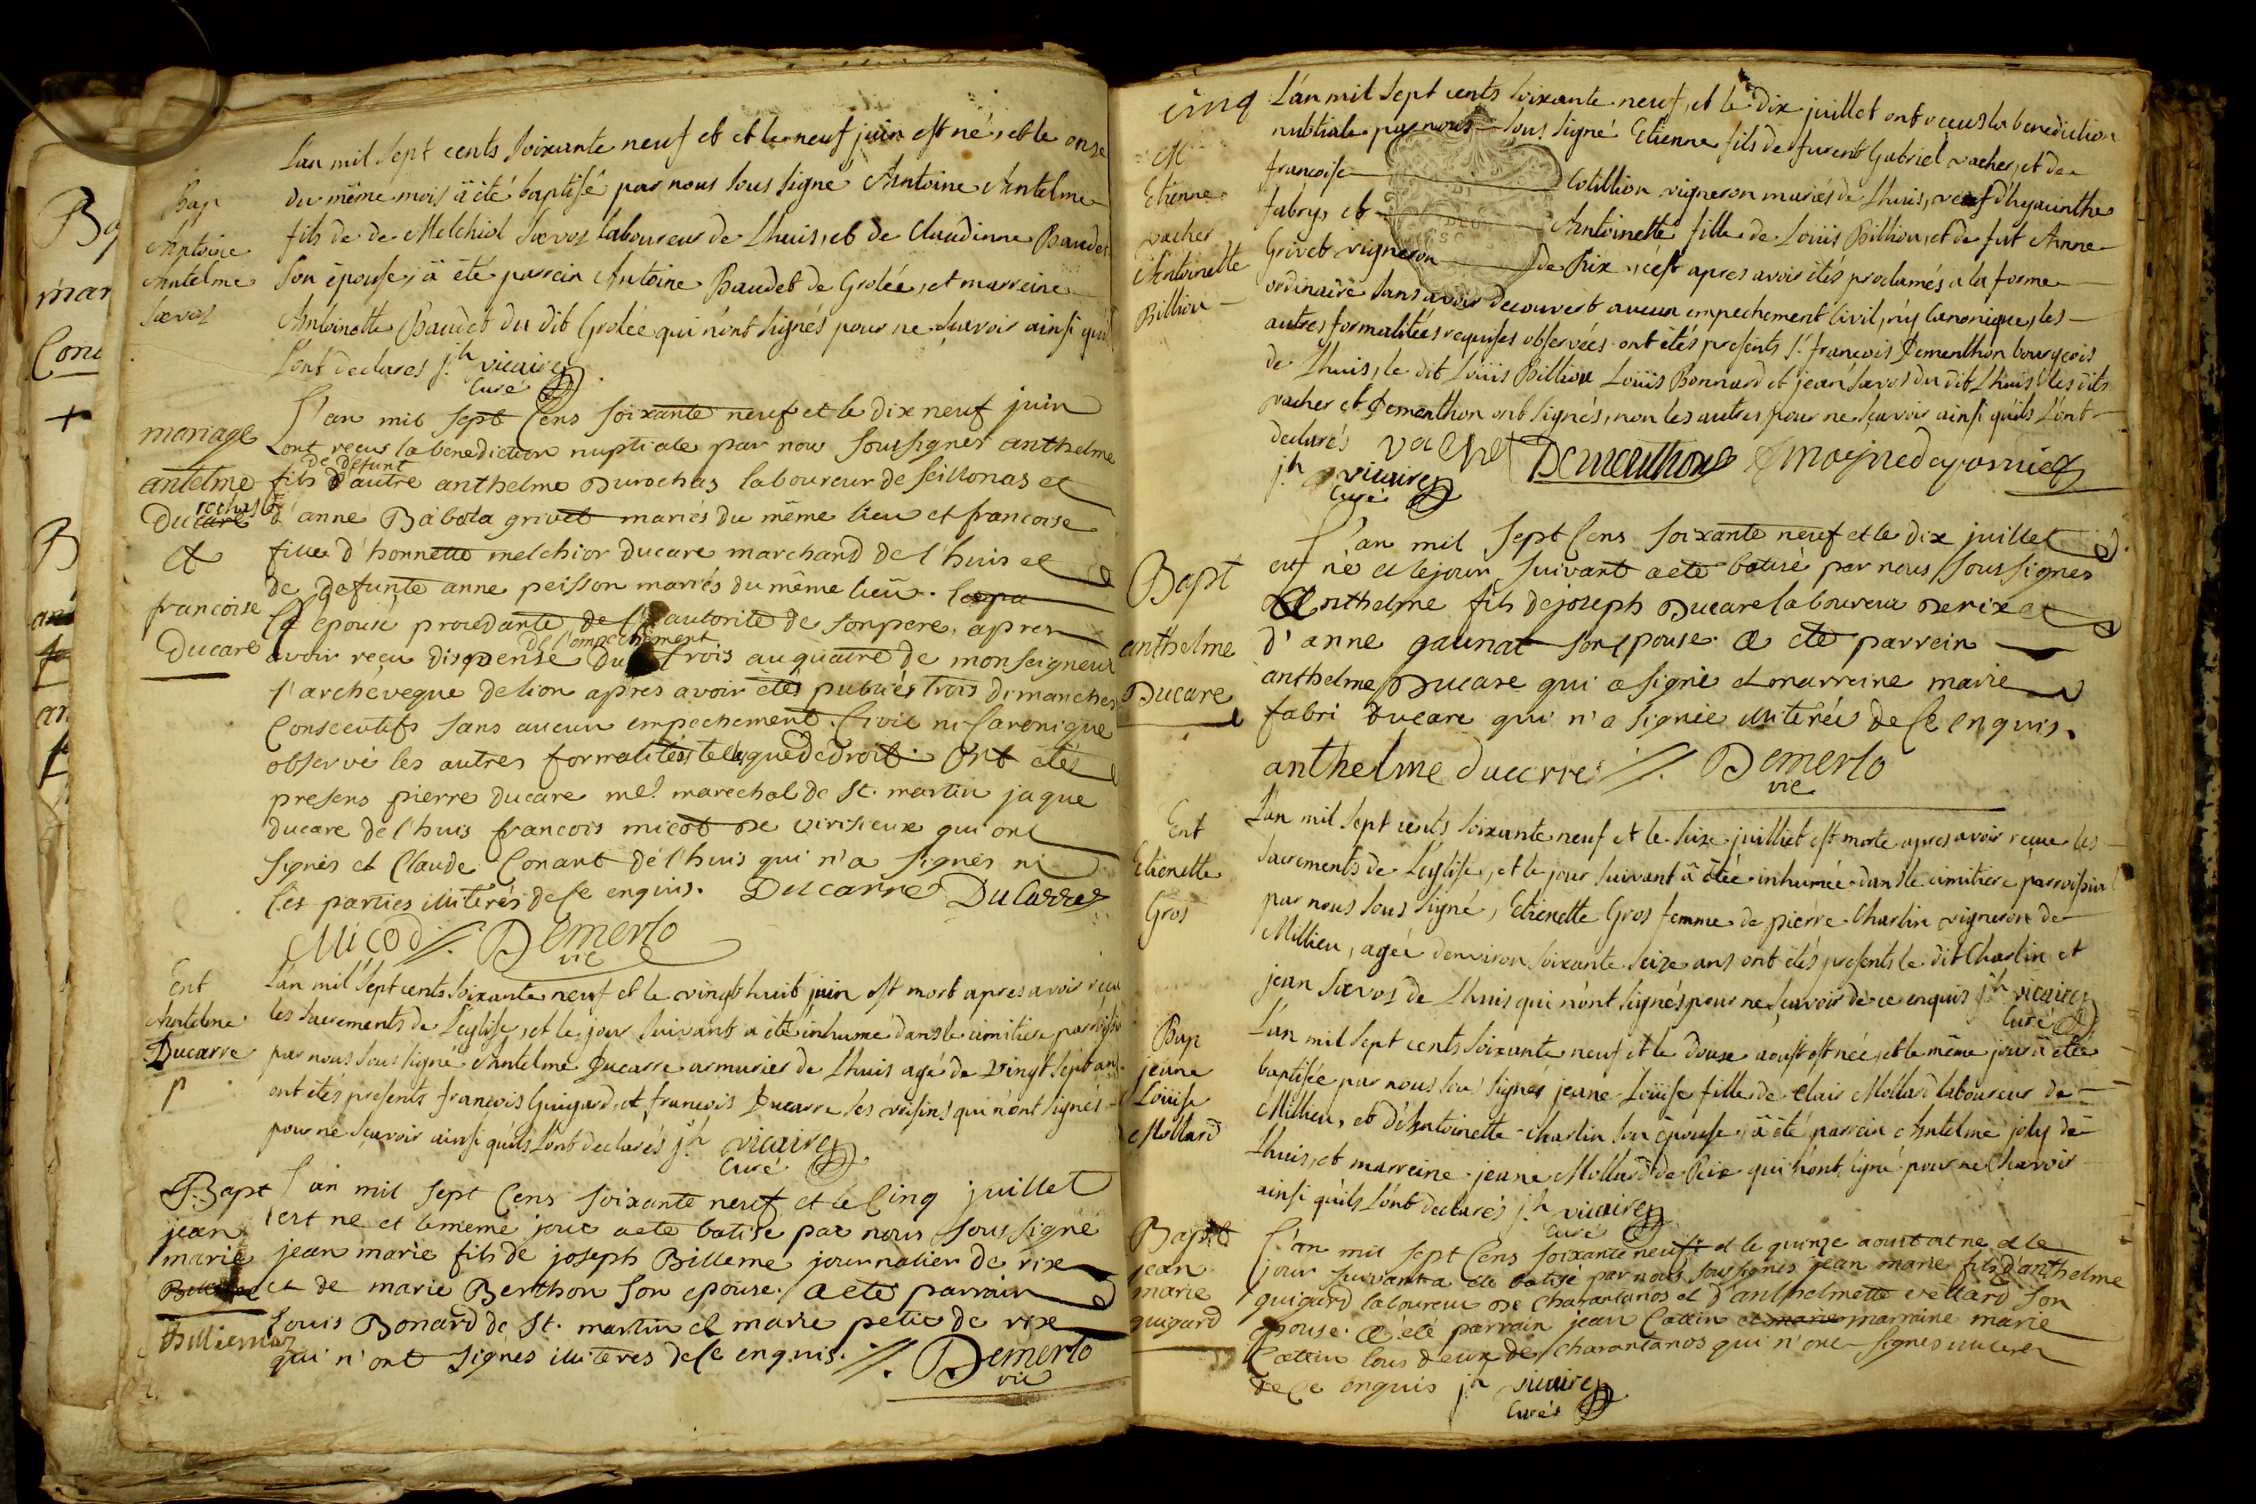 Bap
Antoine
Antelme
Sævoz
L'an mil sept cents soixante neuf et et le neuf juin est né, et le onse
du même mois ä été baptisé par nous sous signé Antoine Antelme
fils de de Melchiol Sævoz laboureur de Lhuis, et de Claudinne Baudet
son épouse, ä été parrein Antoine Baudet de Grolée, et marreine
Antoinette Baudet du dit Grolée qui n'ont signés pour ne sçavoir ainsi qu'ils
l'ont declarés jh vicaire
Curé
mariage
antelme
rochas
Ducare
et
francoise
Ducare
L'an mil sept Cens soixante neuf et le dix neuf juin
ont reçus la benediction nuptiale par nous soussignés anthelme
de defunt
fils d'autre anthelme Durochas laboureur de seillonas et
d'anne Babola grivet mariés du même lieu et francoise
fille d'honnette melchior ducare marchand de l'huis et
de defunte anne peisson mariés du même lieu. lepa
l'épousé procedante de l'autorité de son pere, apres
de l'empechement
avoir reçu dispense du trois au quatre de monseigneur
l'archévêque de lion apres avoir étés publiés trois dimanches
Consecutifs sans aucun empechement Civil ni Canonique
observé les autres formalités telles que de droit. Ont étés
presens pierre ducare me. marechal de St. martin jaque
ducare de l'huis francois micot de virisieux qui ont
signés et Claude Conant de l'huis qui n'a signés ni
les parties illiterés de ce enquis. Ducarre DuCarre
Micod //. Demerlo
vic
Ent
Antelme
Ducarre
p
L'an mil sept cents soixante neuf et le vingt huit juin est mort apres avoir reçu
les sacrements de L'eglise, et le jour suivant a été inhumé dans le cimitiere parroissi
par nous sous signé Antelme Ducarre armurier de Lhuis agé de vingt sept ans
ont étés presents francois Guigard, et francois Ducarre ses voisins qui n'ont signés
pour ne sçavoir ainsi qu'ils l'ont declarés jh vicaire
Curé
Bapt
jean
marie
Billiemaz
L'an mil sept Cens soixante neuf et le Cinq juillet
est né et le meme jour a eté batisé par nous sous signé
jean marie fils de joseph Billeme journalier de rix
et de marie Berthon son epouse. a eté parrain
Louis Bonard de St. martin et marie petit de rix
qui n'ont signés illiterés de ce enquis. //. Demerlo
vic
cinq
M
Etienne
vacher
Antoinette
Billion
L'an mil sept cents soixante neuf, et le dix juillet ont reçeus la benediction
nubtiale par nous sous signé Etienne fils de furent Gabriel vacher, et de
francoise Cotillion vigneron mariés de Lhuis, veuf d'hyacinthe
fabry, et Antoinette fille de Loüis Billion, et de fut Anne
Grivet vigneron de Rix, cest apres avoir étés proclamés a la forme
ordinaire sans avoir decouvert aucun empechement civil, n'y canonique, les
autres formalitées requises observées ont étés presents Sr. francois Dementhon bourgeois
de Lhuis, le dit Loüis Billion Loüis Bonnard et jean Sævoz du dit Lhuis les dits
vacher et Dementhon ont signés, non les autres pour ne sçavoir ainsi qu'ils l'ont
declarés vacher Dementhon
jh vicaire
Curé
Bapt
anthelme
Ducare
L'an mil sept Cens soixante neuf et le dix juillet
est né et le jour suivant a eté batisé par nous soussignés
Anthelme fils de joseph Ducare laboureur de rix et
d'anne gaunat son epouse. a eté parrein
anthelme Ducare qui a signé et marreine marie
fabri Ducare qui n'a signée illiterée de ce enquis.
anthelme ducarre //. Demerlo
vic
Ent
Etienette
Gros
L'an mil sept cents soixante neuf et le seize juilliet est morte apres avoir reçue les
sacrements de L'eglise, et le jour suivant ä étée inhumée dans le cimitiere parroissial
par nous sous signé, Etienette Gros femme de pierre Charlin vigneron de
Millieu, agée d'environ soixante seize ans ont étés presents le dit Charlin et
jean Sævoz de Lhuis qui n'ont signés pour ne sçavoir de ce enquis jh vicaire
Curé
Bap
jeane
Loüise
Mollard
L'an mil sept cents soixante neuf et le douze aoust est née, et le même jour ä étée
baptisée par nous sous signés jeane Loüise fille de Clair Mollard laboureur de
Millieu, et d'Antoinette Charlin son épouse, ä été parrein Antelme joly de
Lhuis, et marreine jeane Mollard de Rix qui n'ont signé pour ne sçavoir
ainsi qu'ils l'ont declarés jh vicaire
Curé
Bapt
jean
marie
guigard
L'an mil sept Cens soixante neuf et le quinze aoust at né et le
jour suivant a été batisé par nous soussignés jean marie fils d'anthelme
guigard laboureur de Charantanos et d'anthelmette vettard son
epouse. a été parrain jean Cattin et marie marraine marie
Cattin tous deux de Charantanos qui n'ont signés illiterés
de Ce enquis jh vicaire
Curés